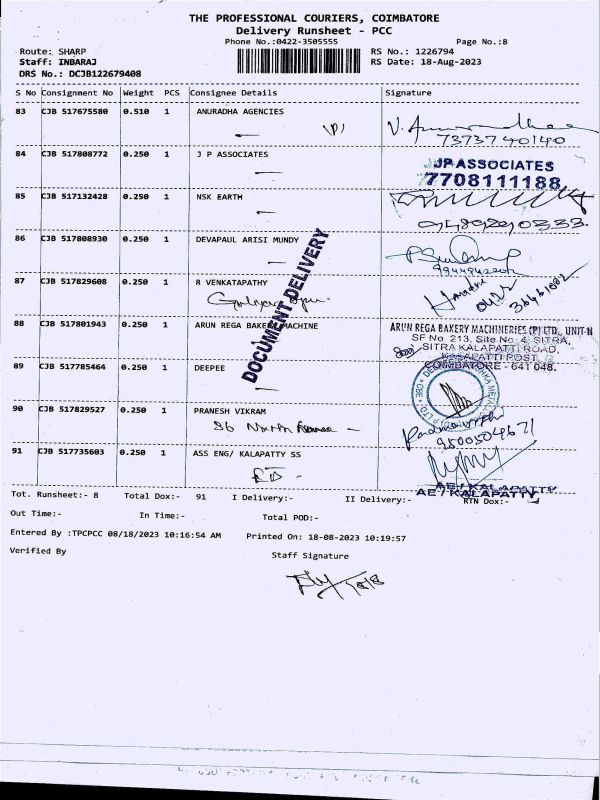 THE PROFESSIONAL COURIERS, COIMBATORE
Delivery Runsheet - PCC
Phone No.:0422-3505555
Page No.:8
Route: SHARP
RS No.: 1226794
Staff: INBARAJ
RS Date: 18-Aug-2023
DRS No.: DCJB122679408
S No Consignment No Weight PCS Consignee Details Signature
83 CJB 517675580 0.510 1 ANURADHA AGENCIES
7373740140
84 CJB 517808772 0.250 1 J P ASSOCIATES
JP ASSOCIATES
7708111188
85 CJB 517132428 0.250 1 NSK EARTH
86 CJB 517808930 0.250 1 DEVAPAUL ARISI MUNDY
DOCUMENT DELIVERY
87 CJB 517829608 0.250 1 R VENKATAPATHY
88 CJB 517801943 0.250 1 ARUN REGA BAKERY MACHINE
ARUN REGA BAKERY MACHINERIES (P) LTD., UNIT-II
SF No. 213, Site No. 4, SITRA,
SITRA KALAPATTI ROAD,
KALAPATTI POST
COIMBATORE - 641 048.
89 CJB 517785464 0.250 1 DEEPEE
90 CJB 517829527 0.250 1 PRANESH VIKRAM
9500504671
91 CJB 517735603 0.250 1 ASS ENG/ KALAPATTY SS
AE / KALAPATTY
AE / KALAPATTY
Tot. Runsheet:- 8 Total Dox:- 91 I Delivery:- II Delivery:- RTN Dox:-
Out Time:- In Time:- Total POD:-
Entered By :TPCPCC 08/18/2023 10:16:54 AM Printed On: 18-08-2023 10:19:57
Verified By
Staff Signature